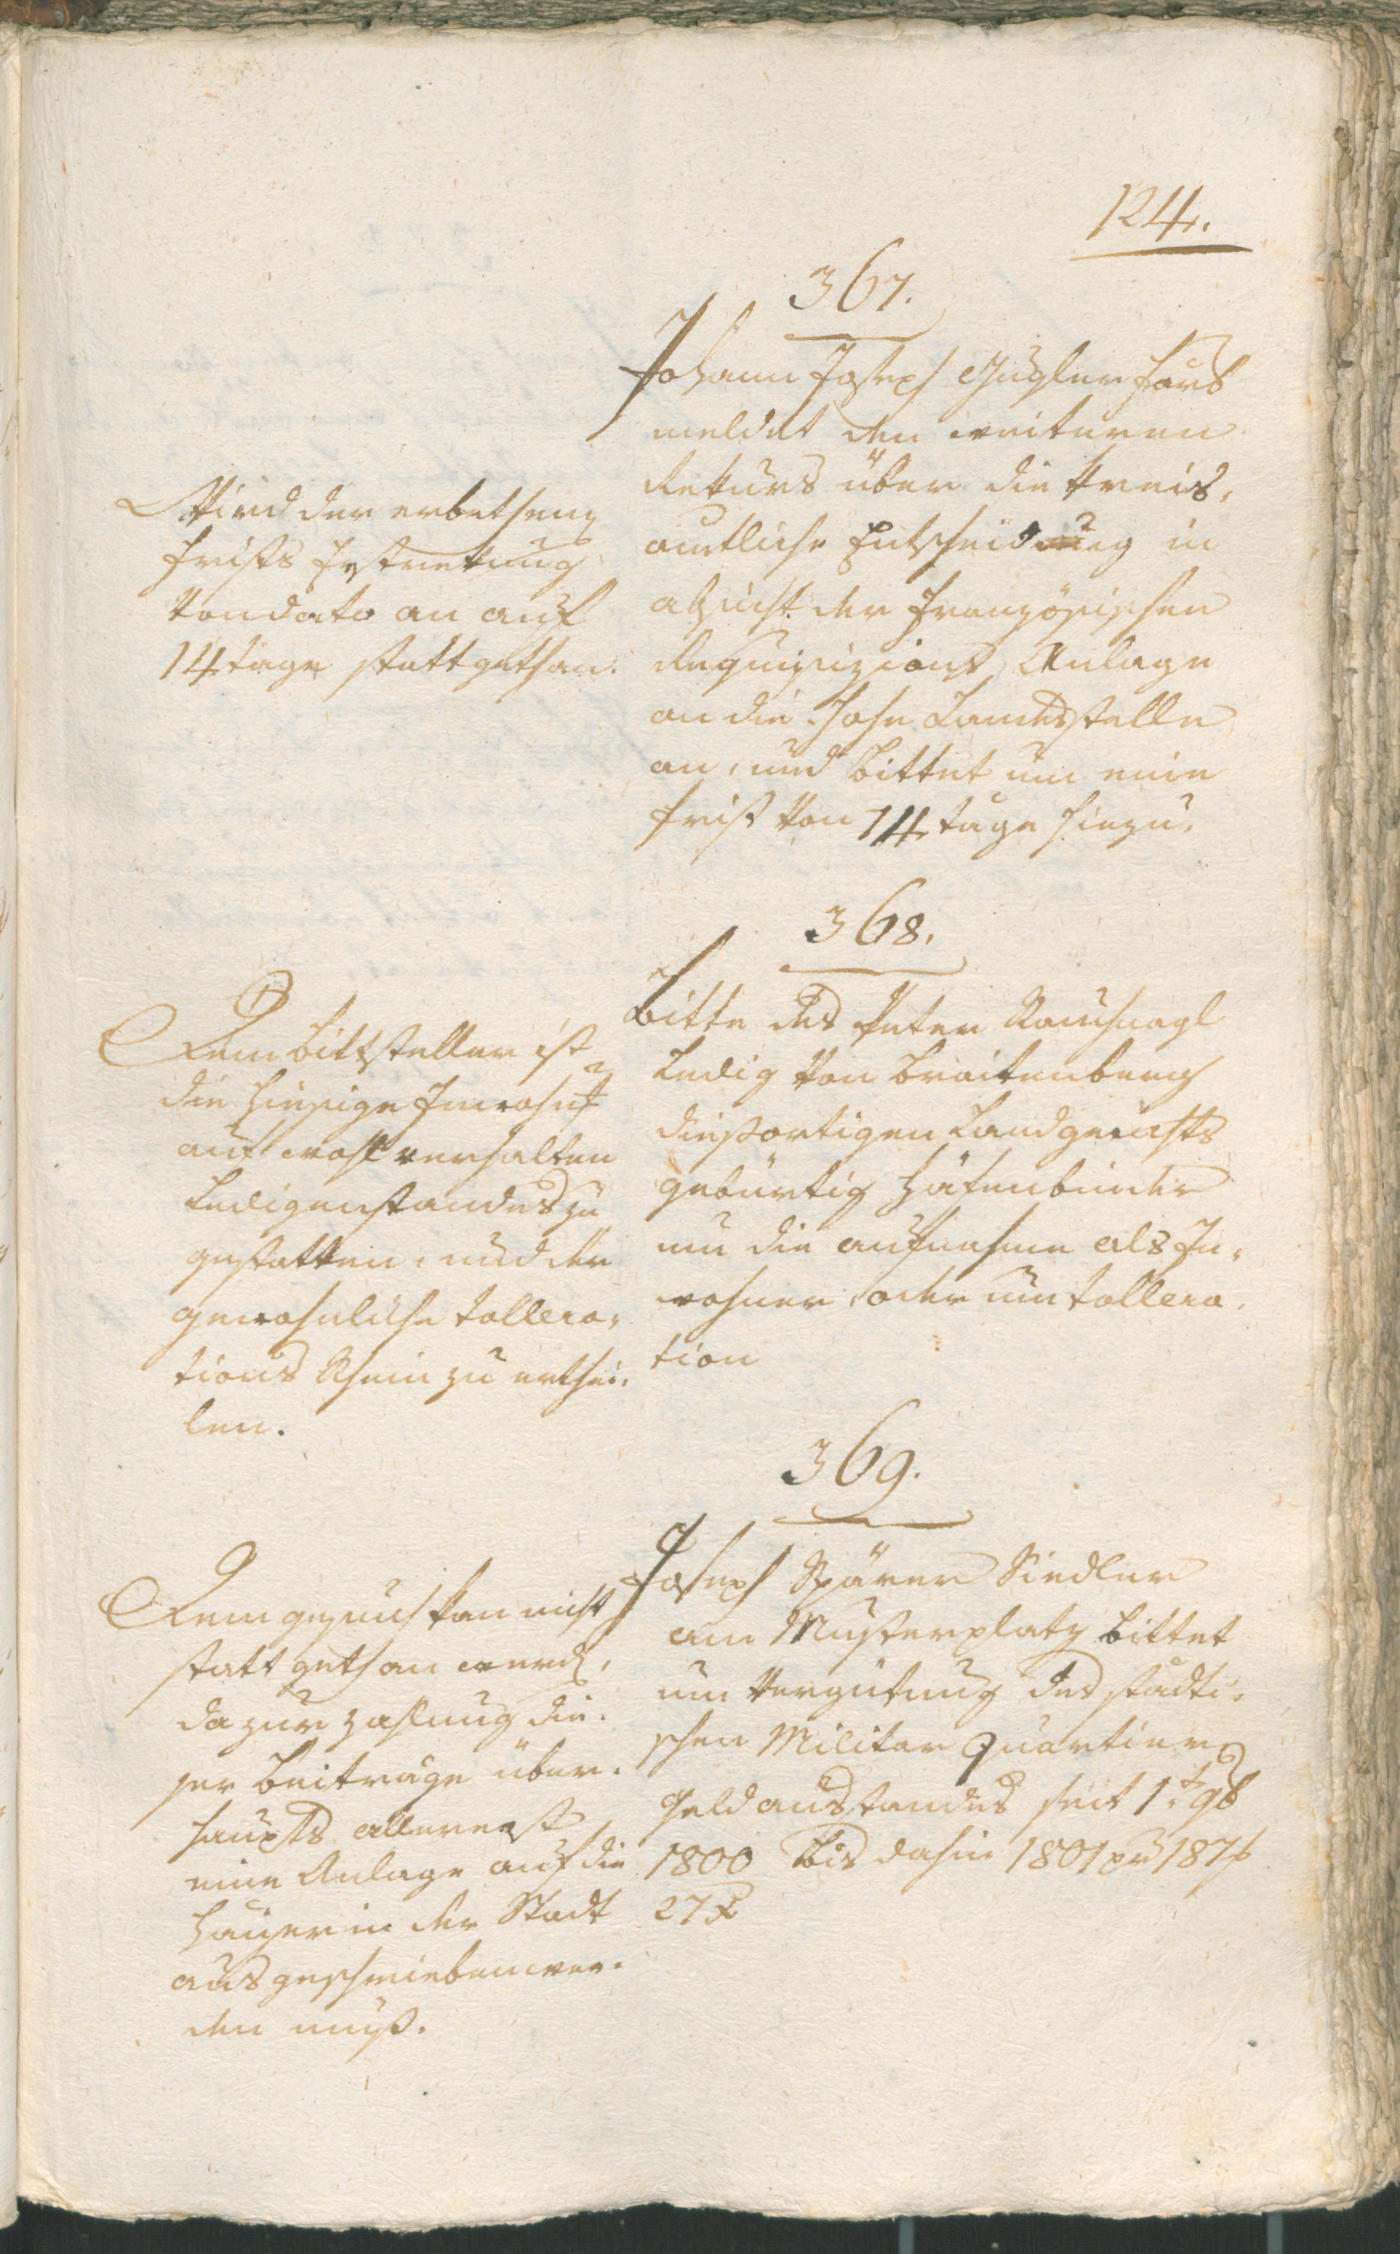 124.
367.
Johann Joseph Gugler
meldet den weiteren
Rekurs über die Kreis,
amtliche Entscheidung in
absicht der französischen
Requisizions Anlage
an die hohe Landesstelle
an, und bittet um eine
frist von 14 tage hiezu.
Wird der erbetheng
frists Erstrekung
von dato an auf
14 tage stattgethan.
368.
Bitte des Peter Rauchnagl
Ledig von Breitenberg
diesortigen Landgerichts
gebürtig Häfenbinder
um die aufnahme als In,
wohner, oder um tollera,
tion
Dem bittsteller ist
die hiesige Inwohn
auf wohlverhalten
Ledigenstandes zu
gestatten, und der
gewohnliche tollera,
tions Schein zu erthei,
len.
369.
Joseph Spärer Siedler
am Musterplatz bittet
um Vergütung des stadti,
schen Militar Quartier
Geldausstandes seit 1t 9b
1800 bis dahin 1801 pr 187 f
27 x
Dem gesuch kan nicht
statt gethan werd,
da zur zahlung die,
ser Beiträge über,
haupts allererst
eine Anlage auf die
Häuser in der Stadt
ausgeschrieben wer,
den muß.